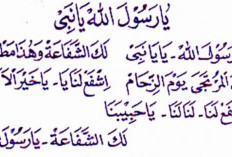 يَارَسُوْلَ اللهْ يَانَبِىْ
رَسُوْلَ اللهْ - يَا يَانَبِىْ لَكَ الشَّفَاعَةْ وَهٰذَا
الْمُرْتَجَى يَوْمَ الزِّحَامِ اِشْفَعْ لَنَا يَا - يَا خَيْرَ
لَنَا - لَنَا لَنَا - يَا حَبِيْبَنَا
لَكَ الشَّفَاعَةْ - يَا رَسُوْلَ